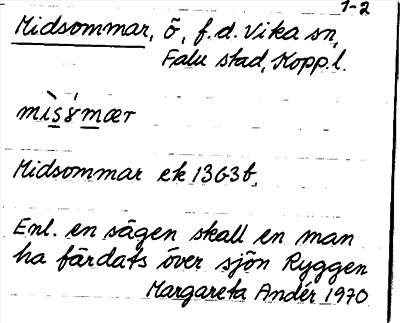 1-2
Midsommar, ö, f.d. Vika sn,
Falu stad, Kopp.l.
mìs8́mær
Midsommar ek 13G3b,
Enl. en sägen skall en man
ha färdats över sjön Ryggen
Margareta Andér 1970